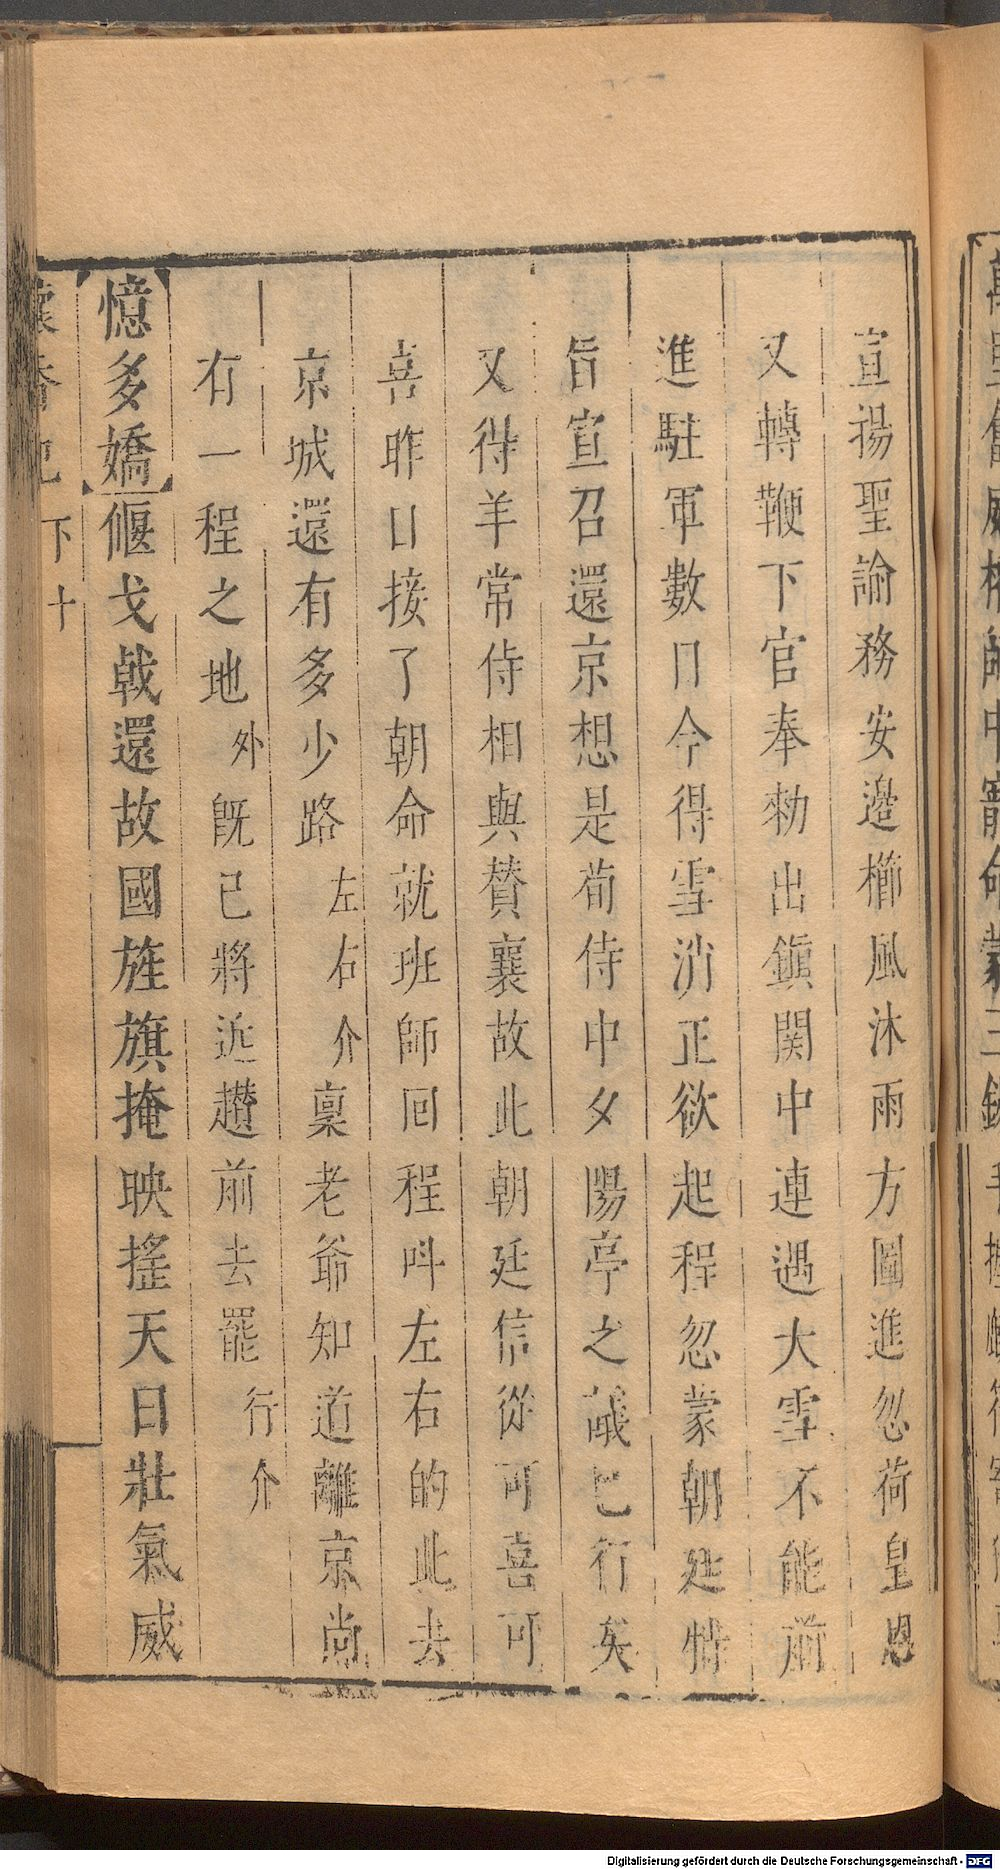 宣揚聖諭務安邊櫛風沐雨方圖進忽荷皇恩
又轉鞭下官奉勑出鎮関中連遇大雪不能前
進駐軍數日今得雪消正欲起程忽蒙朝廷特
旨宣召還京想是荀侍中夕陽亭之議已行矣
又得羊常侍相與賛襄故此朝廷信從可喜可
喜昨日接了朝命就班師囘程呌左右的此去
京城還有多少路左右介稟老爺知道離京尚
有一程之地外既已將近趲前去罷行介
【憶多嬌】偃戈戟還故國旌旗掩映搖天日壯氣威
懷香記 下 十
Digitalisierung gefördert durch die Deutsche Forschungsgemeinschaft - DFG